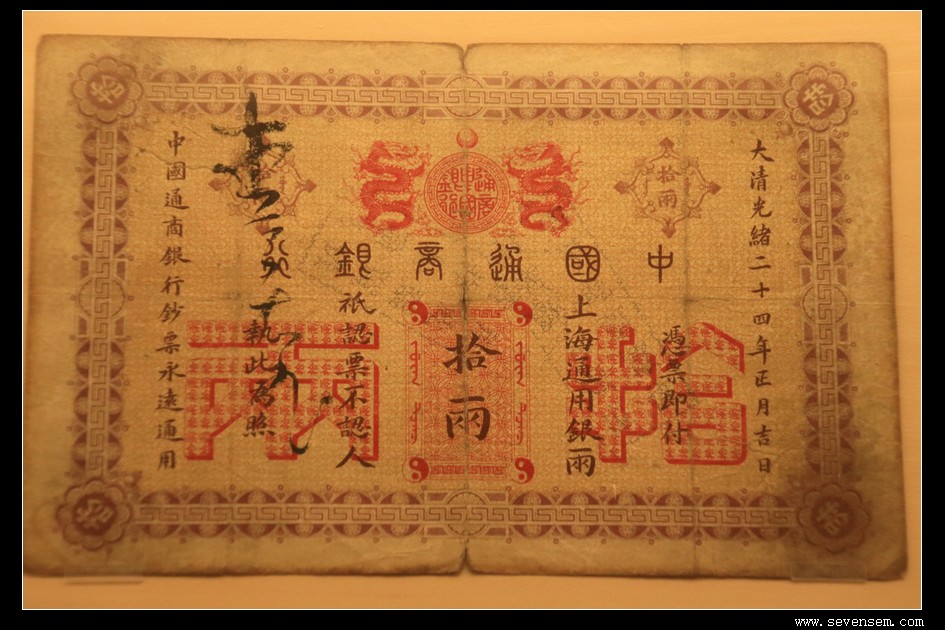 大清光緒二十四年正月吉日
中國通商銀行
拾兩
憑票即付
上海通用銀兩
拾兩
祇認票不認人
執此為照
中國通商銀行鈔票永遠通用
拾兩
拾
拾
拾
拾
www.sevensem.com